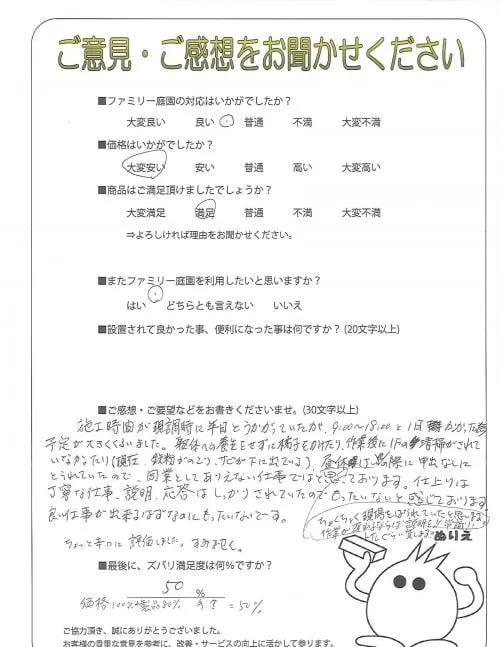 ご意見・ご感想をお聞かせください
■ファミリー庭園の対応はいかがでしたか？
大変良い 良い 普通 不満 大変不満
■価格はいかがでしたか？
大変安い 安い 普通 高い 大変高い
■商品はご満足頂けましたでしょうか？
大変満足 満足 普通 不満 大変不満
⇒よろしければ理由をお聞かせください。
■またファミリー庭園を利用したいと思いますか？
はい どちらとも言えない いいえ
■設置されて良かった事、便利になった事は何ですか？(20文字以上)
■ご感想・ご要望などをお書きくださいませ。(30文字以上)
施工時間が現調時に半日とうかがっていたが、9:00〜18:00と1日かかった為
予定が大きくくるいました。躯体への養生をせずに梯子をかけたり、作業後に1Fの清掃がされて
いなかったり(現在、鉄粉がのこり、サビが下に出ている)、昼休憩は の際に申出なしに
とられていたので、同業としてありえない仕事ではと思っております。仕上りは
丁寧な仕事、説明、応答はしっかりされていたのでもったいないと感じております。
良い仕事が出来るはずなのにもったいないです。
ちょくちょく現場をしばられていたと思いますが
作業が遅れるならば説明を!!常識!!
ちょっと辛口に評価しました。すみません。
ぬりえ
■最後に、ズバリ満足度は何％ですか？
50 %
価格100% 製品80% = 50%
ご協力頂き、誠にありがとうございました。
お客様の貴重な意見を参考に、改善・サービスの向上に活かして参ります。